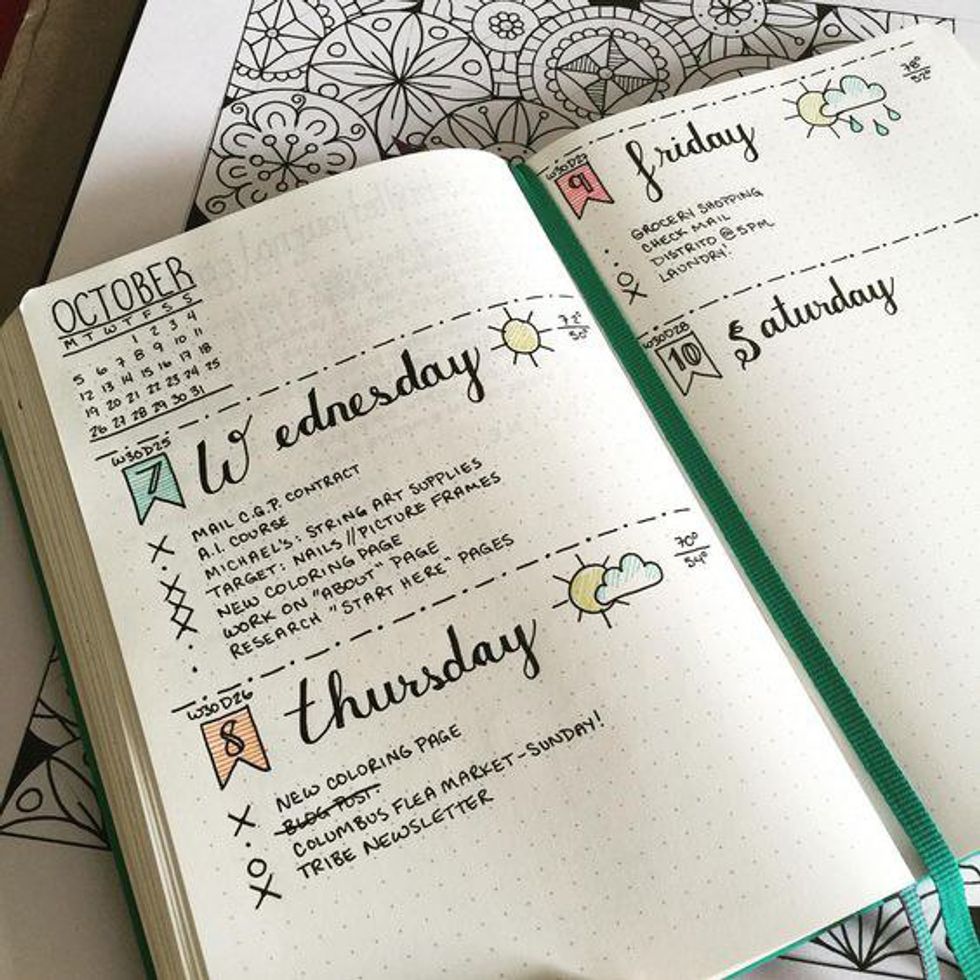 OCTOBER
M T W T F S S
1 2 3 4
5 6 7 8 9 10 11
12 13 14 15 16 17 18
19 20 21 22 23 24 25
26 27 28 29 30 31
W30D25
7 Wednesday 72° 50°
X MAIL C.Q.P. CONTRACT
· A.I. COURSE
X MICHAEL'S: STRING ART SUPPLIES
X TARGET: NAILS // PICTURE FRAMES
X NEW COLORING PAGE
· WORK ON "ABOUT" PAGE
· RESEARCH "START HERE" PAGES
W30D26
8 thursday 70° 54°
X NEW COLORING PAGE
· BLOG POST.
O COLUMBUS FLEA MARKET-SUNDAY!
X TRIBE NEWSLETTER
W30D27
9 friday 78° 52°
· GROCERY SHOPPING
· CHECK MAIL
O DISTRITO @ 5PM
X LAUNDRY!
W30D28
10 Saturday